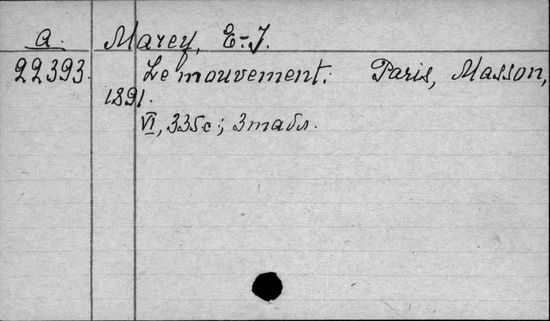 a. Marey, E-J.
22393. Le mouvement. Paris, Masson,
1891.
VI, 335c; 3 табл.